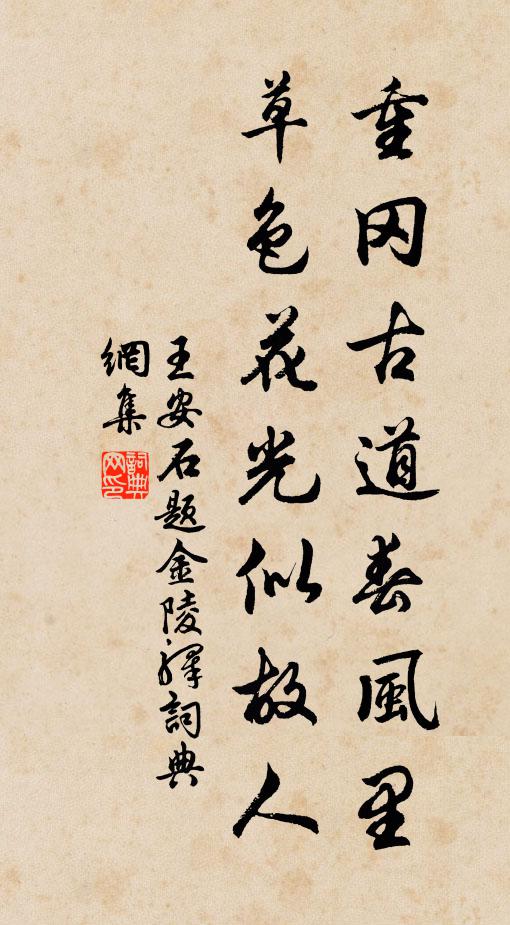 重冈古道春風里
草色花光似故人
王安石题金陵驛詞典
網集
詞典
网印